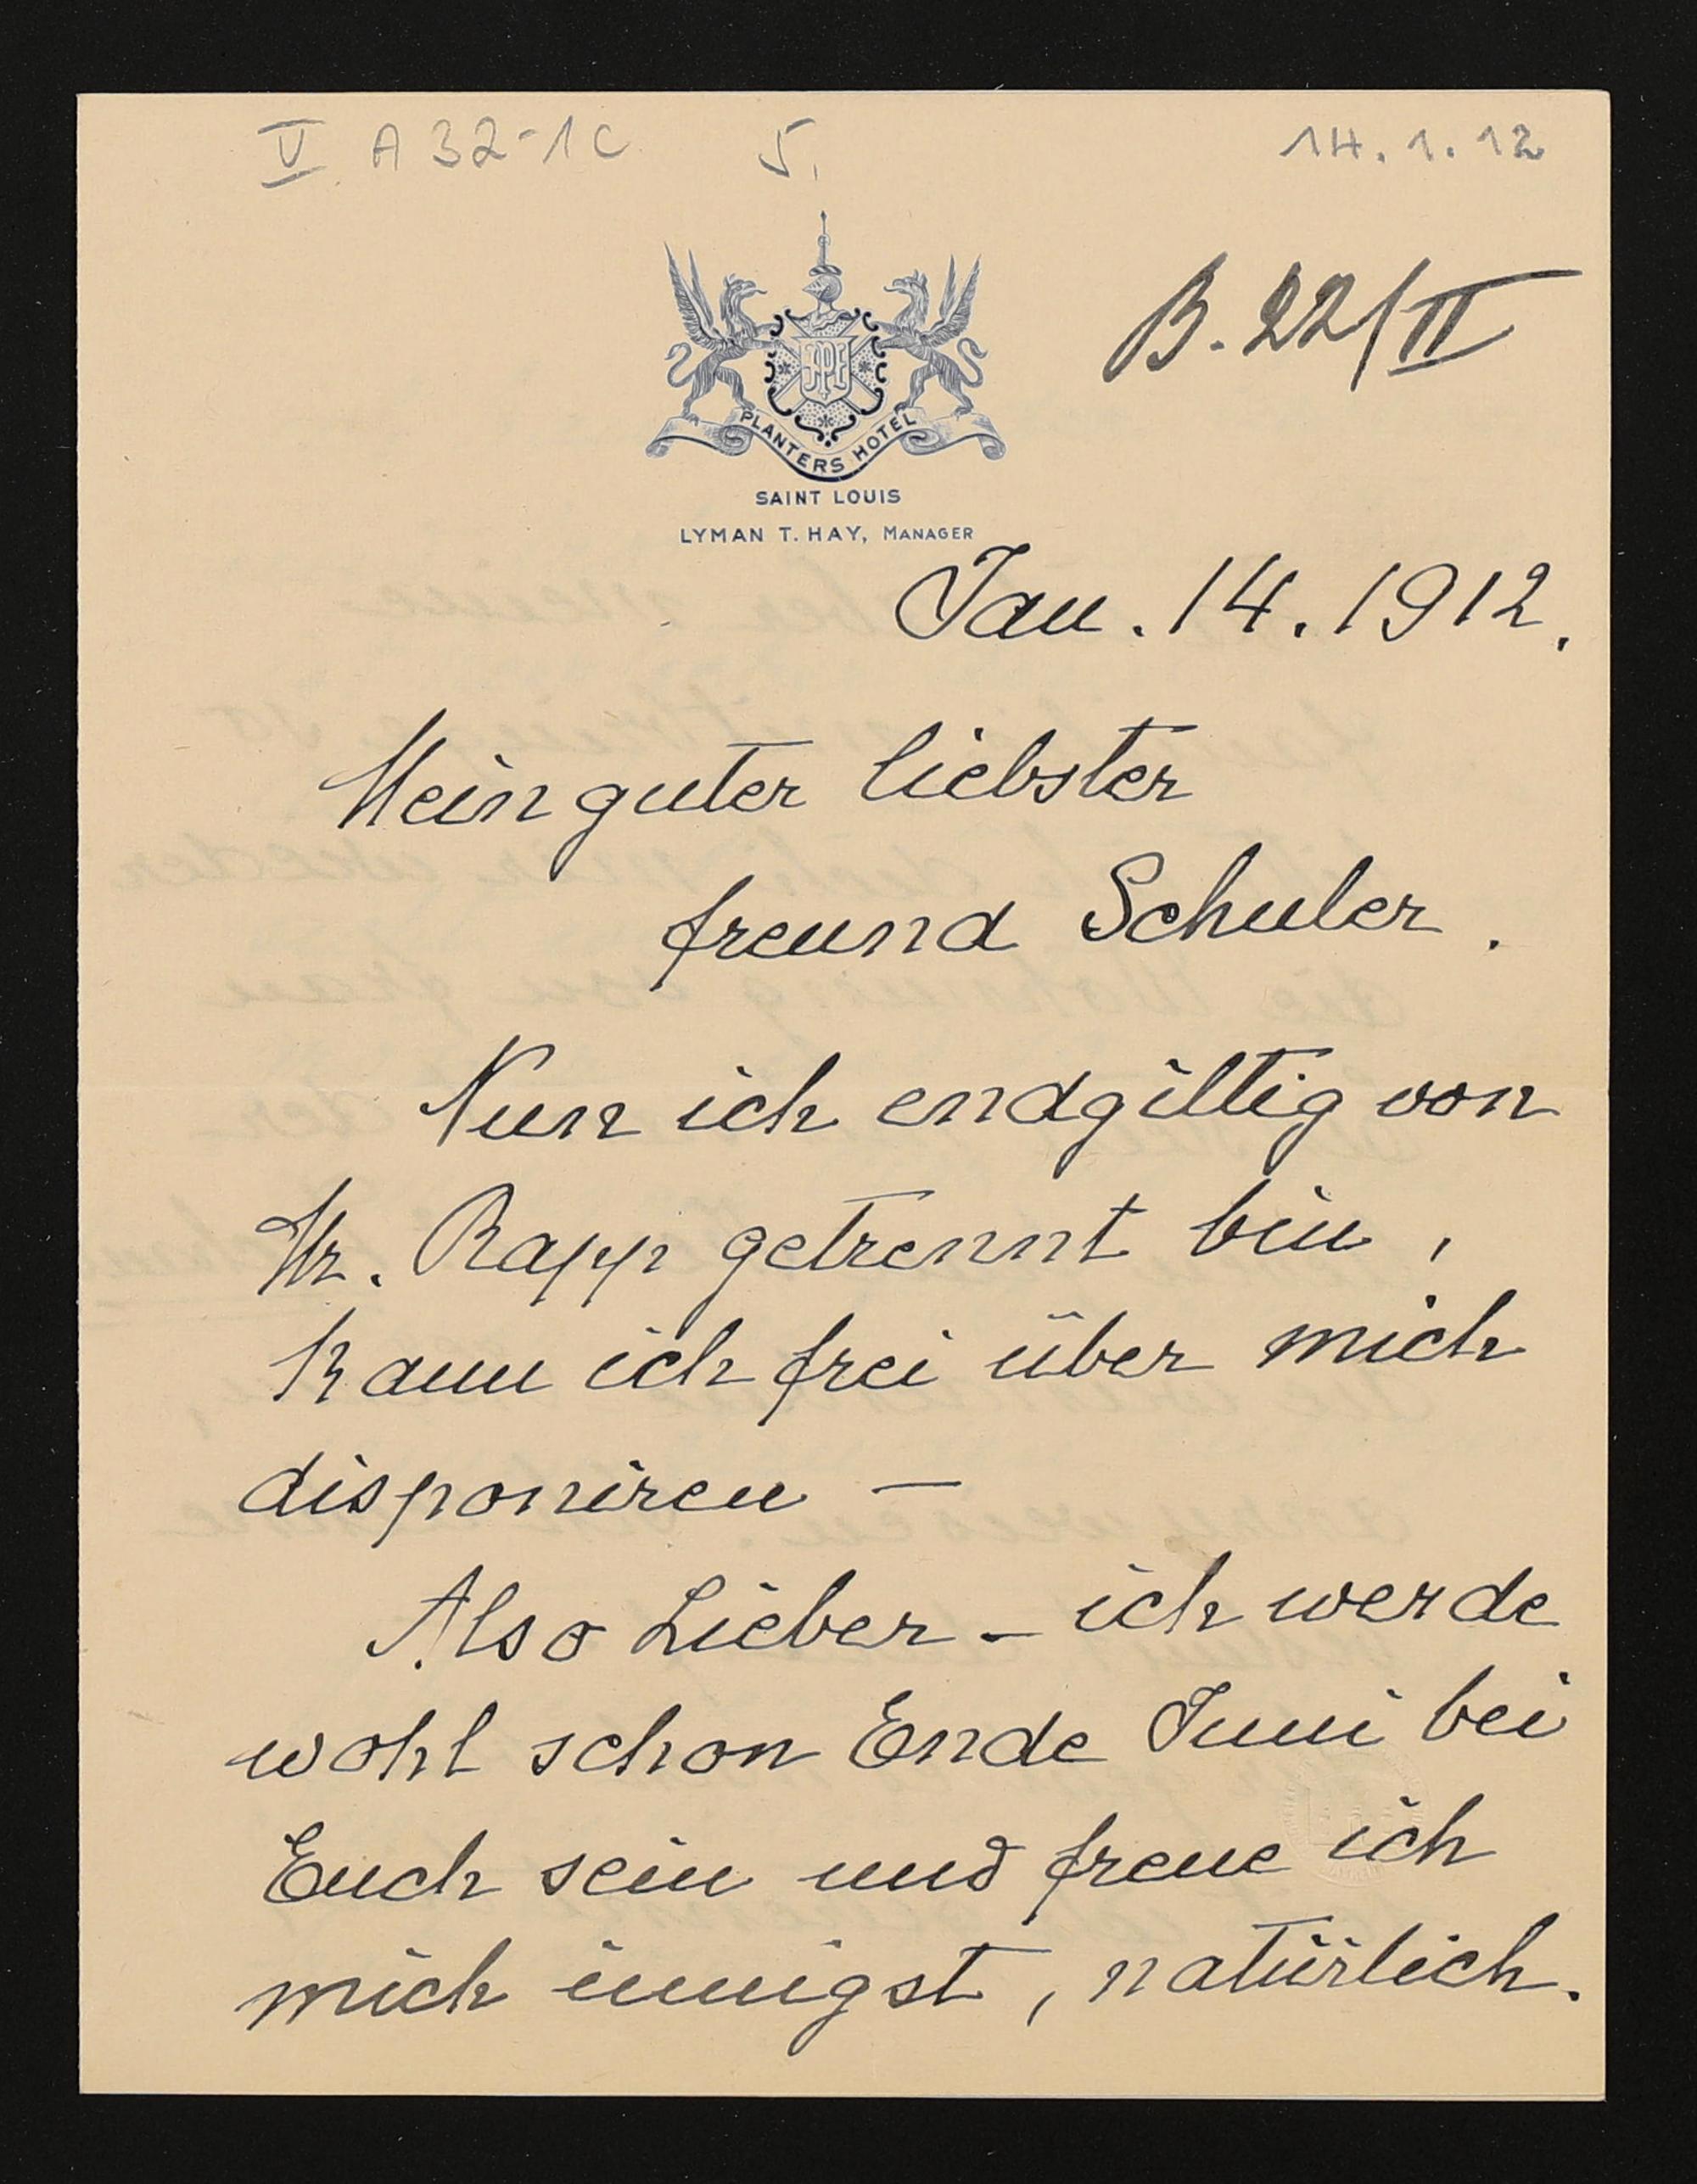 V A 32-1c 5. 14.1.12
B. 22/II
PLANTERS HOTEL
SAINT LOUIS
LYMAN T. HAY, MANAGER
Jan. 14. 1912.
Mein guter liebster
freund Schuler.
Nun ich endgiltig von
Mr. Rapp getrennt bin,
kann ich frei über mich
disponiren —
Also Lieber – ich werde
wohl schon Ende Juni bei
Euch sein und freue ich
mich innigst, natürlich.